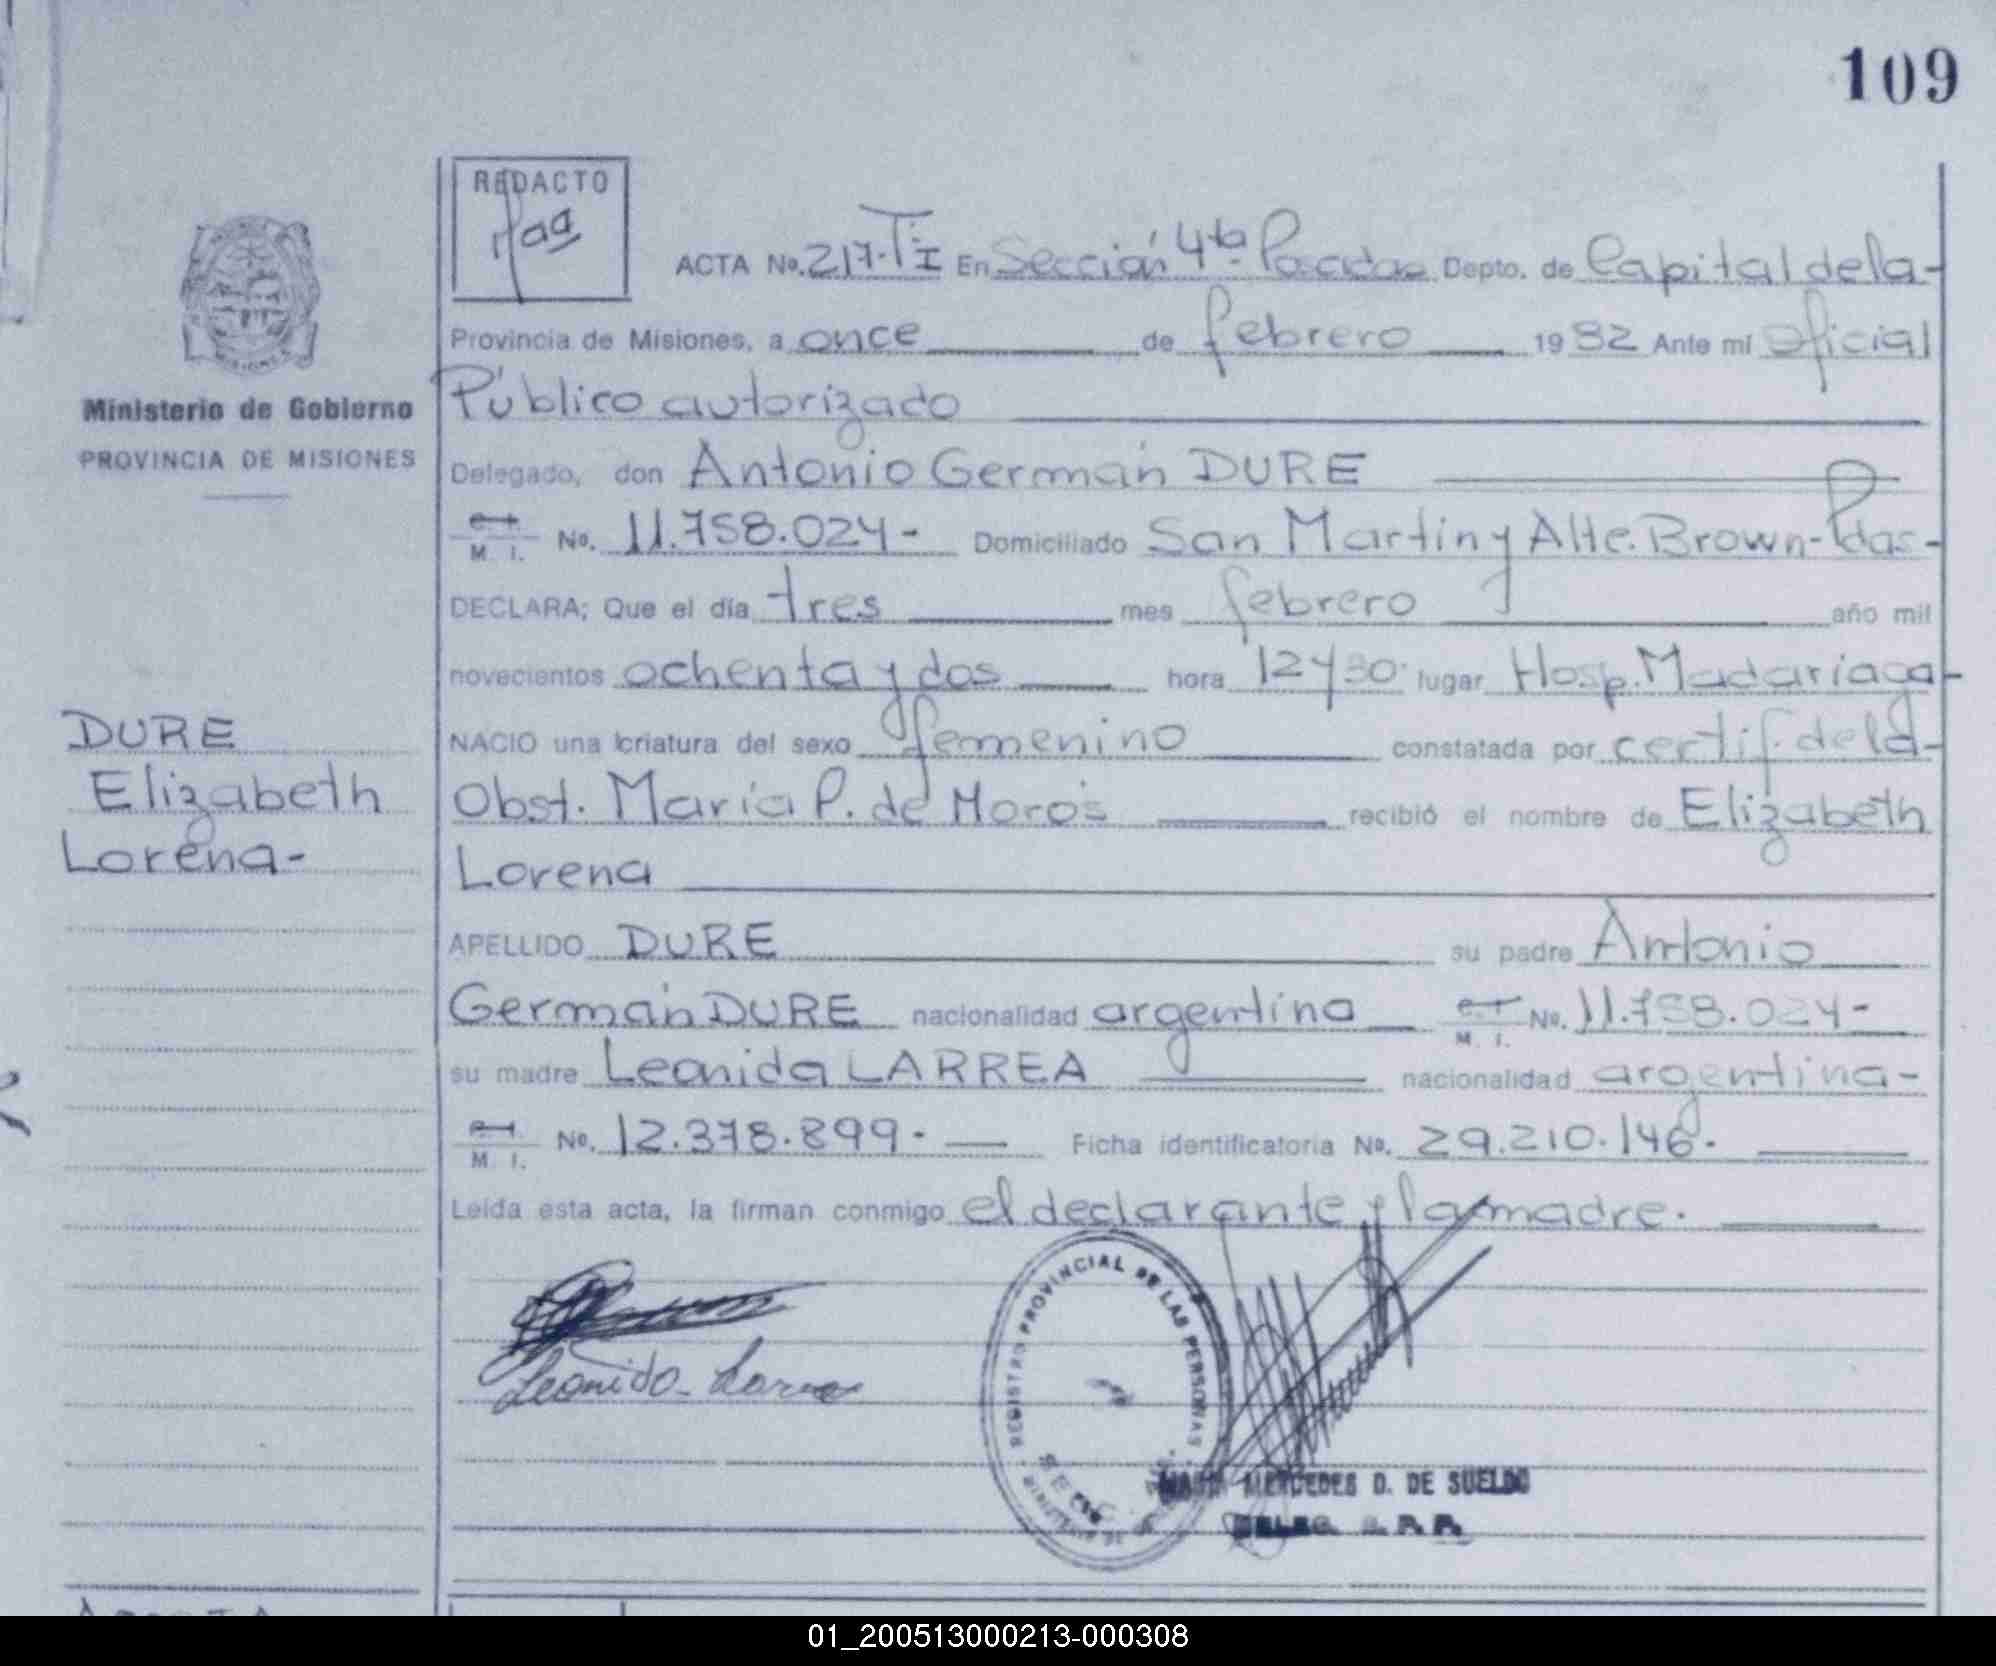 109
REDACTO
ACTA No. 217-T:I En Sección 4ta Posadas Depto. de Capital de la-
Provincia de Misiones, a once de febrero 1982 Ante mi Oficial
Público autorizado
Delegado, don Antonio Germán DURE
M. I. No. 11.758.024- Domiciliado San Martin y Alte. Brown-Pdas-
DECLARA; Que el día tres mes febrero año mil
novecientos ochenta y dos hora 12y30 lugar Hosp. Madariaga-
NACIO una criatura del sexo femenino constatada por certif. de la-
Obst. María P. de Moros recibió el nombre de Elizabeth
Lorena
APELLIDO DURE su padre Antonio
Germán DURE nacionalidad argentina M. I. No. 11.758.024-
su madre Leonida LARREA nacionalidad argentina-
M. I. No. 12.378.899.- Ficha identificatoria No. 29.210.146.
Leída esta acta, la firman conmigo el declarante y la madre.
Ministerio de Gobierno
PROVINCIA DE MISIONES
DURE
Elizabeth
Lorena-
Leonida Larrea
REGISTRO PROVINCIAL DE LAS PERSONAS
MERCEDES D. DE SUELDO
DELEG. R. P. P.
01_200513000213-000308